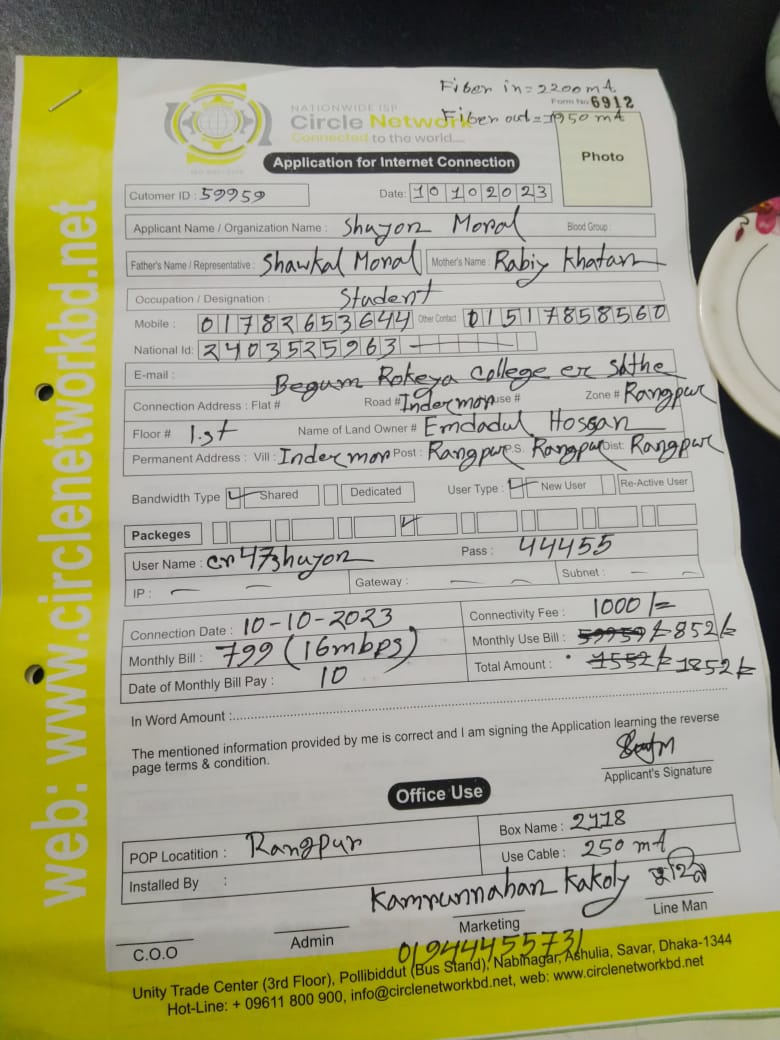 Fiber in = 2200 mA
Form No 6912
NATIONWIDE ISP
Circle Network
Fiber out = 1950 mA
Connected to the world....
Photo
Application for Internet Connection
Cutomer ID : 59959 Date: 10102023
Applicant Name / Organization Name : Shuyon Moral Blood Group :
Father's Name / Representative : Shawkal Moral Mother's Name : Rabiy Khatan
Occupation / Designation : Student
Mobile : 01782653644 Other Contact : 01517858560
National Id: 2403525963
E-mail :
Begum Rokeya College er sathe
Connection Address : Flat # Road # Indermor use # Zone # Rangpur
Floor # 1st Name of Land Owner # Emdadul Hossan
Permanent Address : Vill : Indermor Post : Rangpur P.S. Rangpur Dist: Rangpur
Bandwidth Type Shared Dedicated User Type : New User Re-Active User
Packeges
User Name : Pass : 44455
IP : Gateway : Subnet :
Connection Date : 10-10-2023 Connectivity Fee : 1000/=
Monthly Bill : 799 (16mbps) Monthly Use Bill : 59959/= 852/=
Date of Monthly Bill Pay : 10 Total Amount : 1552/= 1852/=
In Word Amount :
The mentioned information provided by me is correct and I am signing the Application learning the reverse
page terms & condition.
Applicant's Signature
Office Use
POP Locatition : Rangpur Box Name : 2118
Installed By : Use Cable : 250 mA
Kamrunnahan Kakoly
C.O.O Admin Marketing Line Man
01944455731
Unity Trade Center (3rd Floor), Pollibiddut (Bus Stand), Nabinagar, Ashulia, Savar, Dhaka-1344
Hot-Line: + 09611 800 900, info@circlenetworkbd.net, web: www.circlenetworkbd.net
web: www.circlenetworkbd.net